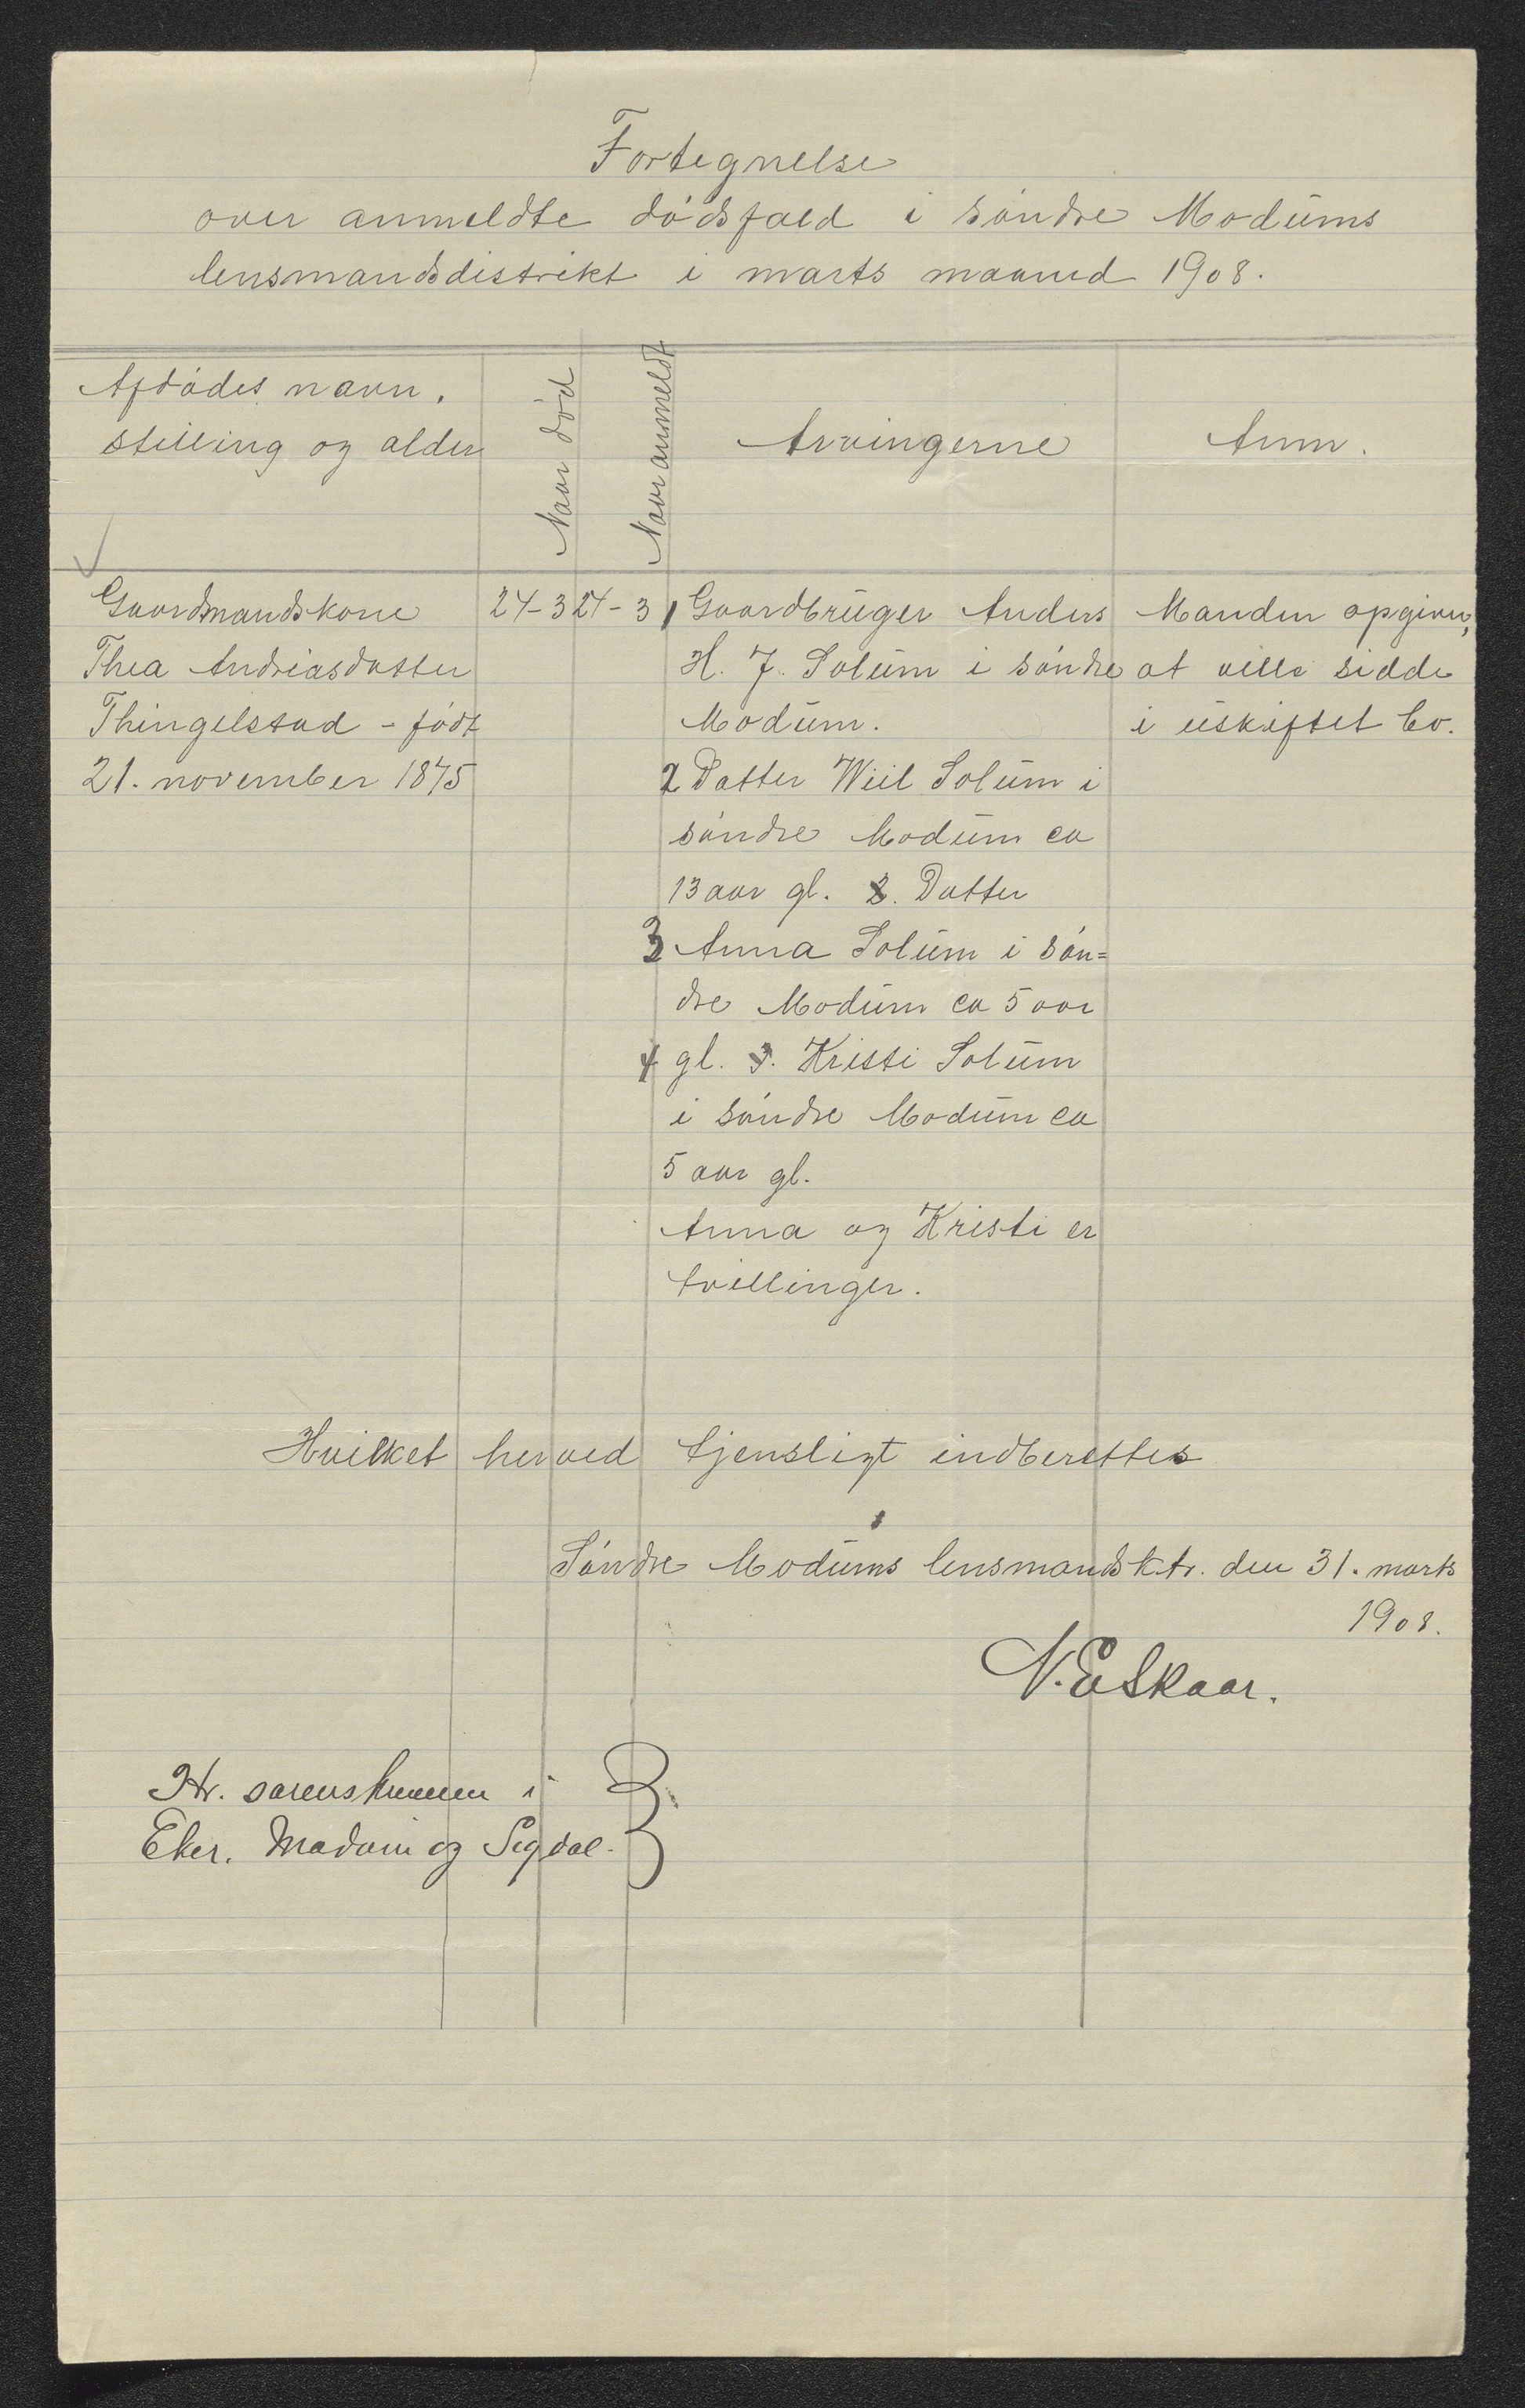 Fortegnelse
over anmeldte dødsfald i søndre Modums
lensmandsdistrikt i marts maaned 1908.
Afdødes navn,
stilling og alder
Naar død
Naar anmeldt
Arvingerne
Anm.
Gaardmandskone
Thea Andreasdatter
Thingelstad - født
21. november 1875
24-3
24-3
1 Gaardbruger Anders
H. J. Solum i søndre
Modum.
2 Datter Wiil Solum i
søndre Modum ca
13 aar gl. 2. Datter
3 Anna Solum i søn=
dre Modum ca 5 aar
4 gl. 3. Kristi Solum
i søndre Modum ca
5 aar gl.
Anna og Kristi er
tvillinger.
Manden opgiver,
at ville sidde
i uskiftet bo.
Hvilket herved tjensligt indberettes
Søndre Modums lensmandsktr. den 31. marts
1908.
N. E. Skaar.
Hr. sorenskriveren i
Eker, Modum og Sigdal.